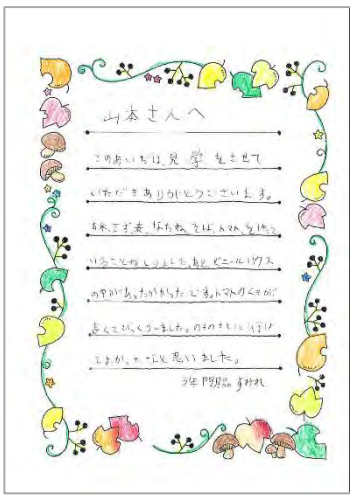 山本さんへ
このあいちは、見学をさせて
いただきありがとうございます。
お米、三ず、麦、なたね、そば、トマト、を作って
いることがしりました。あと ビニールハウス
の中があったかかったです。トマトのくきが
長くてびっくりしました。
よかったなと思いました。
3年 すみれ